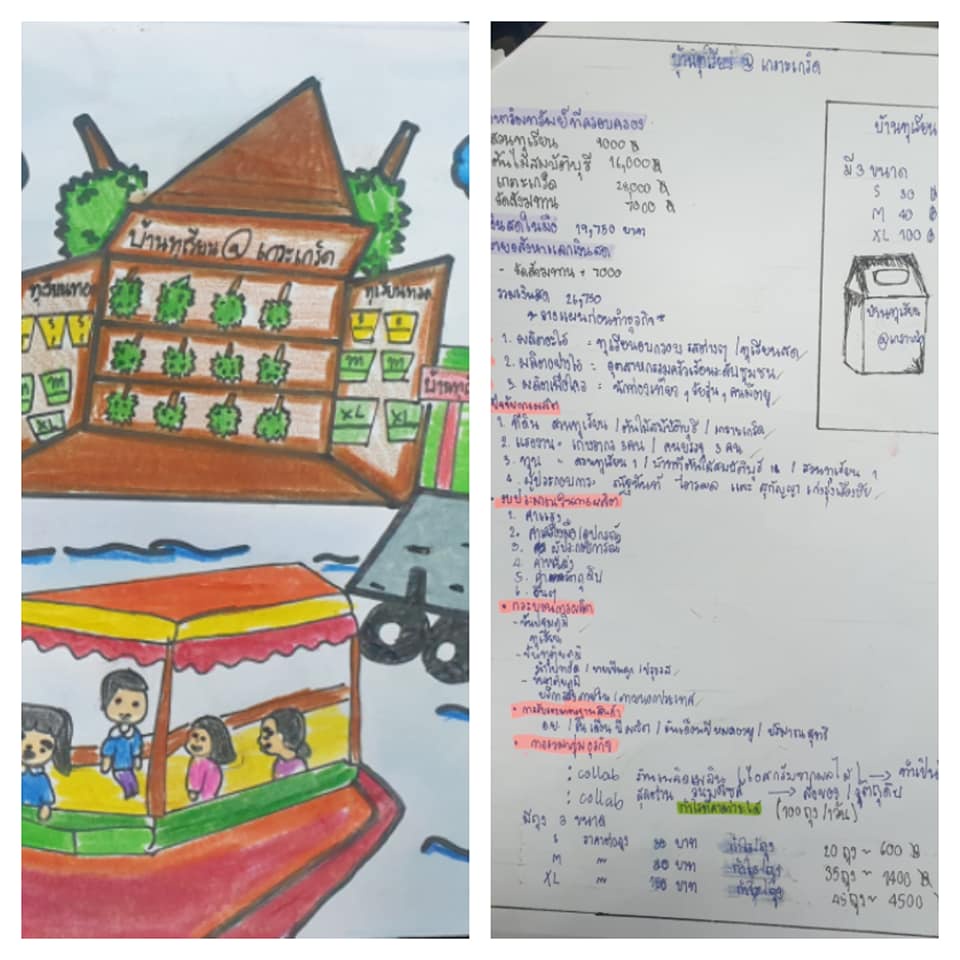 บ้านทุเรียน @ เกาะเกร็ด
ทุเรียนทอด
ทุเรียนทอด
S S
S S
m
m m
XL
XL XL
บ้านทุเ
บ้านทุเรียน @ เกาะเกร็ด
ทรัพย์ที่ครอบครอง
สวนทุเรียน 9000 ฿
ต้นไม้สมบัติบุรี 16,000 ฿
เกาะเกร็ด 28,000 ฿
7000 ฿
นสดในมือ 19,750 บาท
- + 7000
รวมเงินสด 26,750
* วางแผนก่อนทำธุรกิจ *
1. ผลิตอะไร = ทุเรียนอบกรอบ รสต่างๆ / ทุเรียนสด
2. ผลิตอย่างไร = อุตสาหกรรมครัวเรือนระดับชุมชน
3. ผลิตเพื่อใคร = นักท่องเที่ยว , วัยรุ่น , คนมีอายุ
ปัจจัยการผลิต
1. ที่ดิน สวนทุเรียน / ต้นไม้สมบัติบุรี / เกาะเกร็ด
2. แรงงาน = เกษตรกร 3 คน / คนแปรรูป 3 คน
3. ทุน = สวนทุเรียน 1 / / สวนทุเรียน 1
4. ผู้ประกอบการ และ สุกัญญา
งบประมาณในการผลิต
1. ค่าแรง
2. ค่าเครื่องมือ/อุปกรณ์
3. ผู้ประกอบการณ์
4. ค่าขนส่ง
5. ค่าวัตถุดิบ
6. อื่นๆ
• กระบวนการผลิต
- ขั้นปฐมภูมิ
ทุเรียน
- ขั้นทุติยภูมิ
/ หั่นเป็นลูก / ปรุงรส
- ขั้นตติยภูมิ
บริการส่งภายใน / ภายนอกประเทศ
• การรับรองมาตรฐานสินค้า
อย. / วันเดือนปีผลิต / วันเดือนปีหมดอายุ / ปริมาณสุทธิ
• การรวมกลุ่มธุรกิจ
: collab ร้านเพลินเพลิน / ไอศกรีมจากผลไม้ →
: collab → ส่งของ / วัตถุดิบ
กำไรที่คาดว่าจะได้ (100 ถุง / 1 วัน)
มีถุง 3 ขนาด
S ราคาต่อถุง 30 บาท กำไร/ถุง 20 ถุง ~ 600 ฿
M " บาท กำไร/ถุง 35 ถุง ~ 1400 ฿
XL " บาท กำไร/ถุง 45 ถุง ~ 4500
บ้านทุเรียน
มี 3 ขนาด
S 30 ฿
M 40 ฿
XL 100 ฿
บ้านทุเรียน
@เกาะเกร็